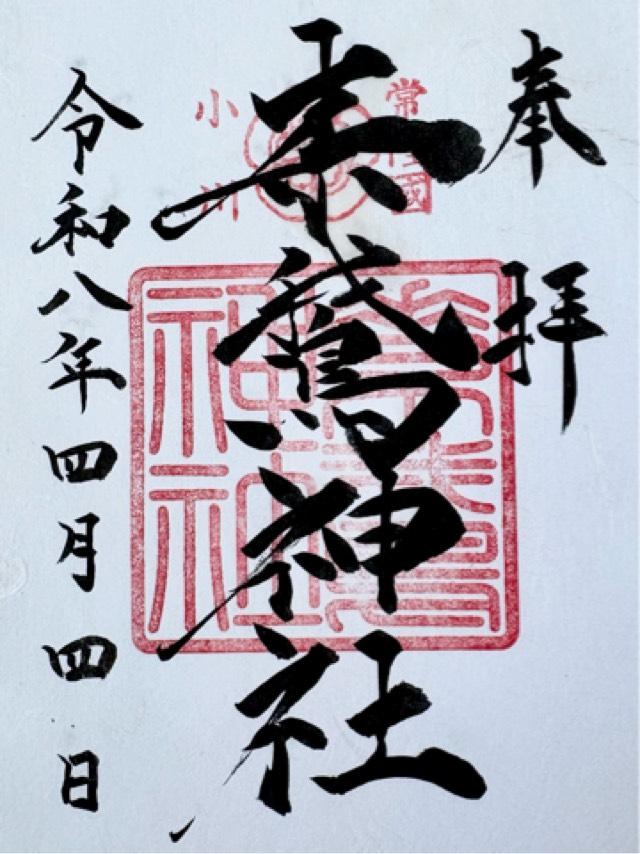 奉拝
常陸國
素鵞神社
小川
素鵞
神社
令和八年四月四日